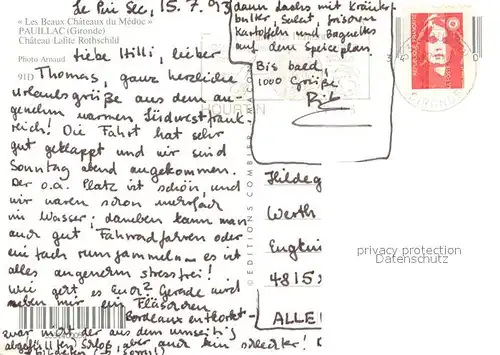 Le Pin Sec, 15.7.93
« Les Beaux Châteaux du Médoc »
PAUILLAC (Gironde)
Château Lafite Rothschild
Photo Arnaud
91D
Liebe Hilli, lieber
Thomas, ganz herzliche
Urlaubsgrüße aus dem an-
genehm warmen Südwestfrank-
reich! Die Fahrt hat sehr
gut geklappt und wir sind
Sonntag abend angekommen.
Der o.a. Platz ist schön, und
wir waren schon mehrfach
im Wasser; daneben kann man
auch gut Fahrradfahren oder
einfach rumgammeln – es ist
alles angenehm stressfrei!
Wie geht es Euch? Gerade wird
neben mir ein Fläschchen
Bordeaux entkorkt –
zwar nicht der aus dem umseitig
abgefüllten Schloß, aber auch kein schlechter!
dann
mit Kräuter-
butter, Salat, frischen
Kartoffeln und Baguettes
auf dem Speiseplan.
Bis bald,
1000 Grüße
HOURTIN
© EDITIONS COMBIER MÂCON
REPUBLIQUE FRANÇAISE
GIRONDE
Hildeg
Werth
4815
ALLE
privacy protection
DATENSCHUTZ